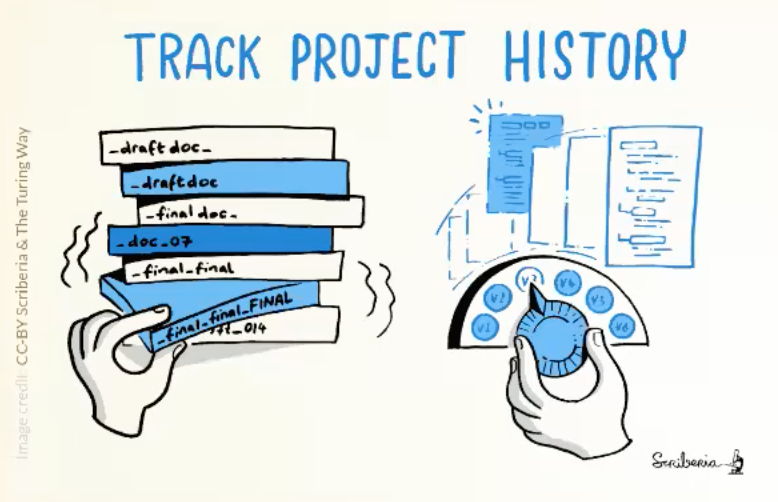 TRACK PROJECT HISTORY
_draft doc_
_draft doc
_final doc_
_doc_07
_final_final
_final_final_FINAL
_014
V1
V2
V3
V4
V5
V6
Image credit: CC-BY Scriberia & The Turing Way
Scriberia